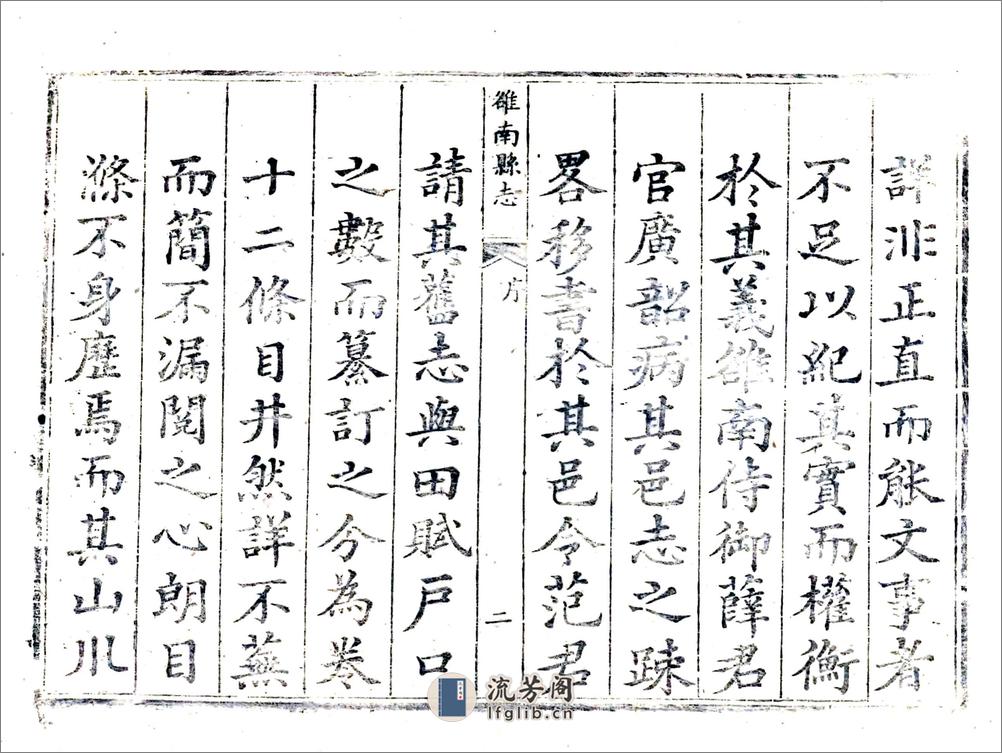 詳非正直而能文事者
不足以紀其實而權衡
於其義雒南侍御薛君
官廣韶病其邑志之踈
畧移書於其邑令范君
雒南縣志
序
二
請其舊志與田賦戸口
之數而纂訂之分為卷
十二條目井然詳不蕪
而簡不漏閱之心朗目
滌不身歷焉而其山川
流芳阁
lfglib.cn